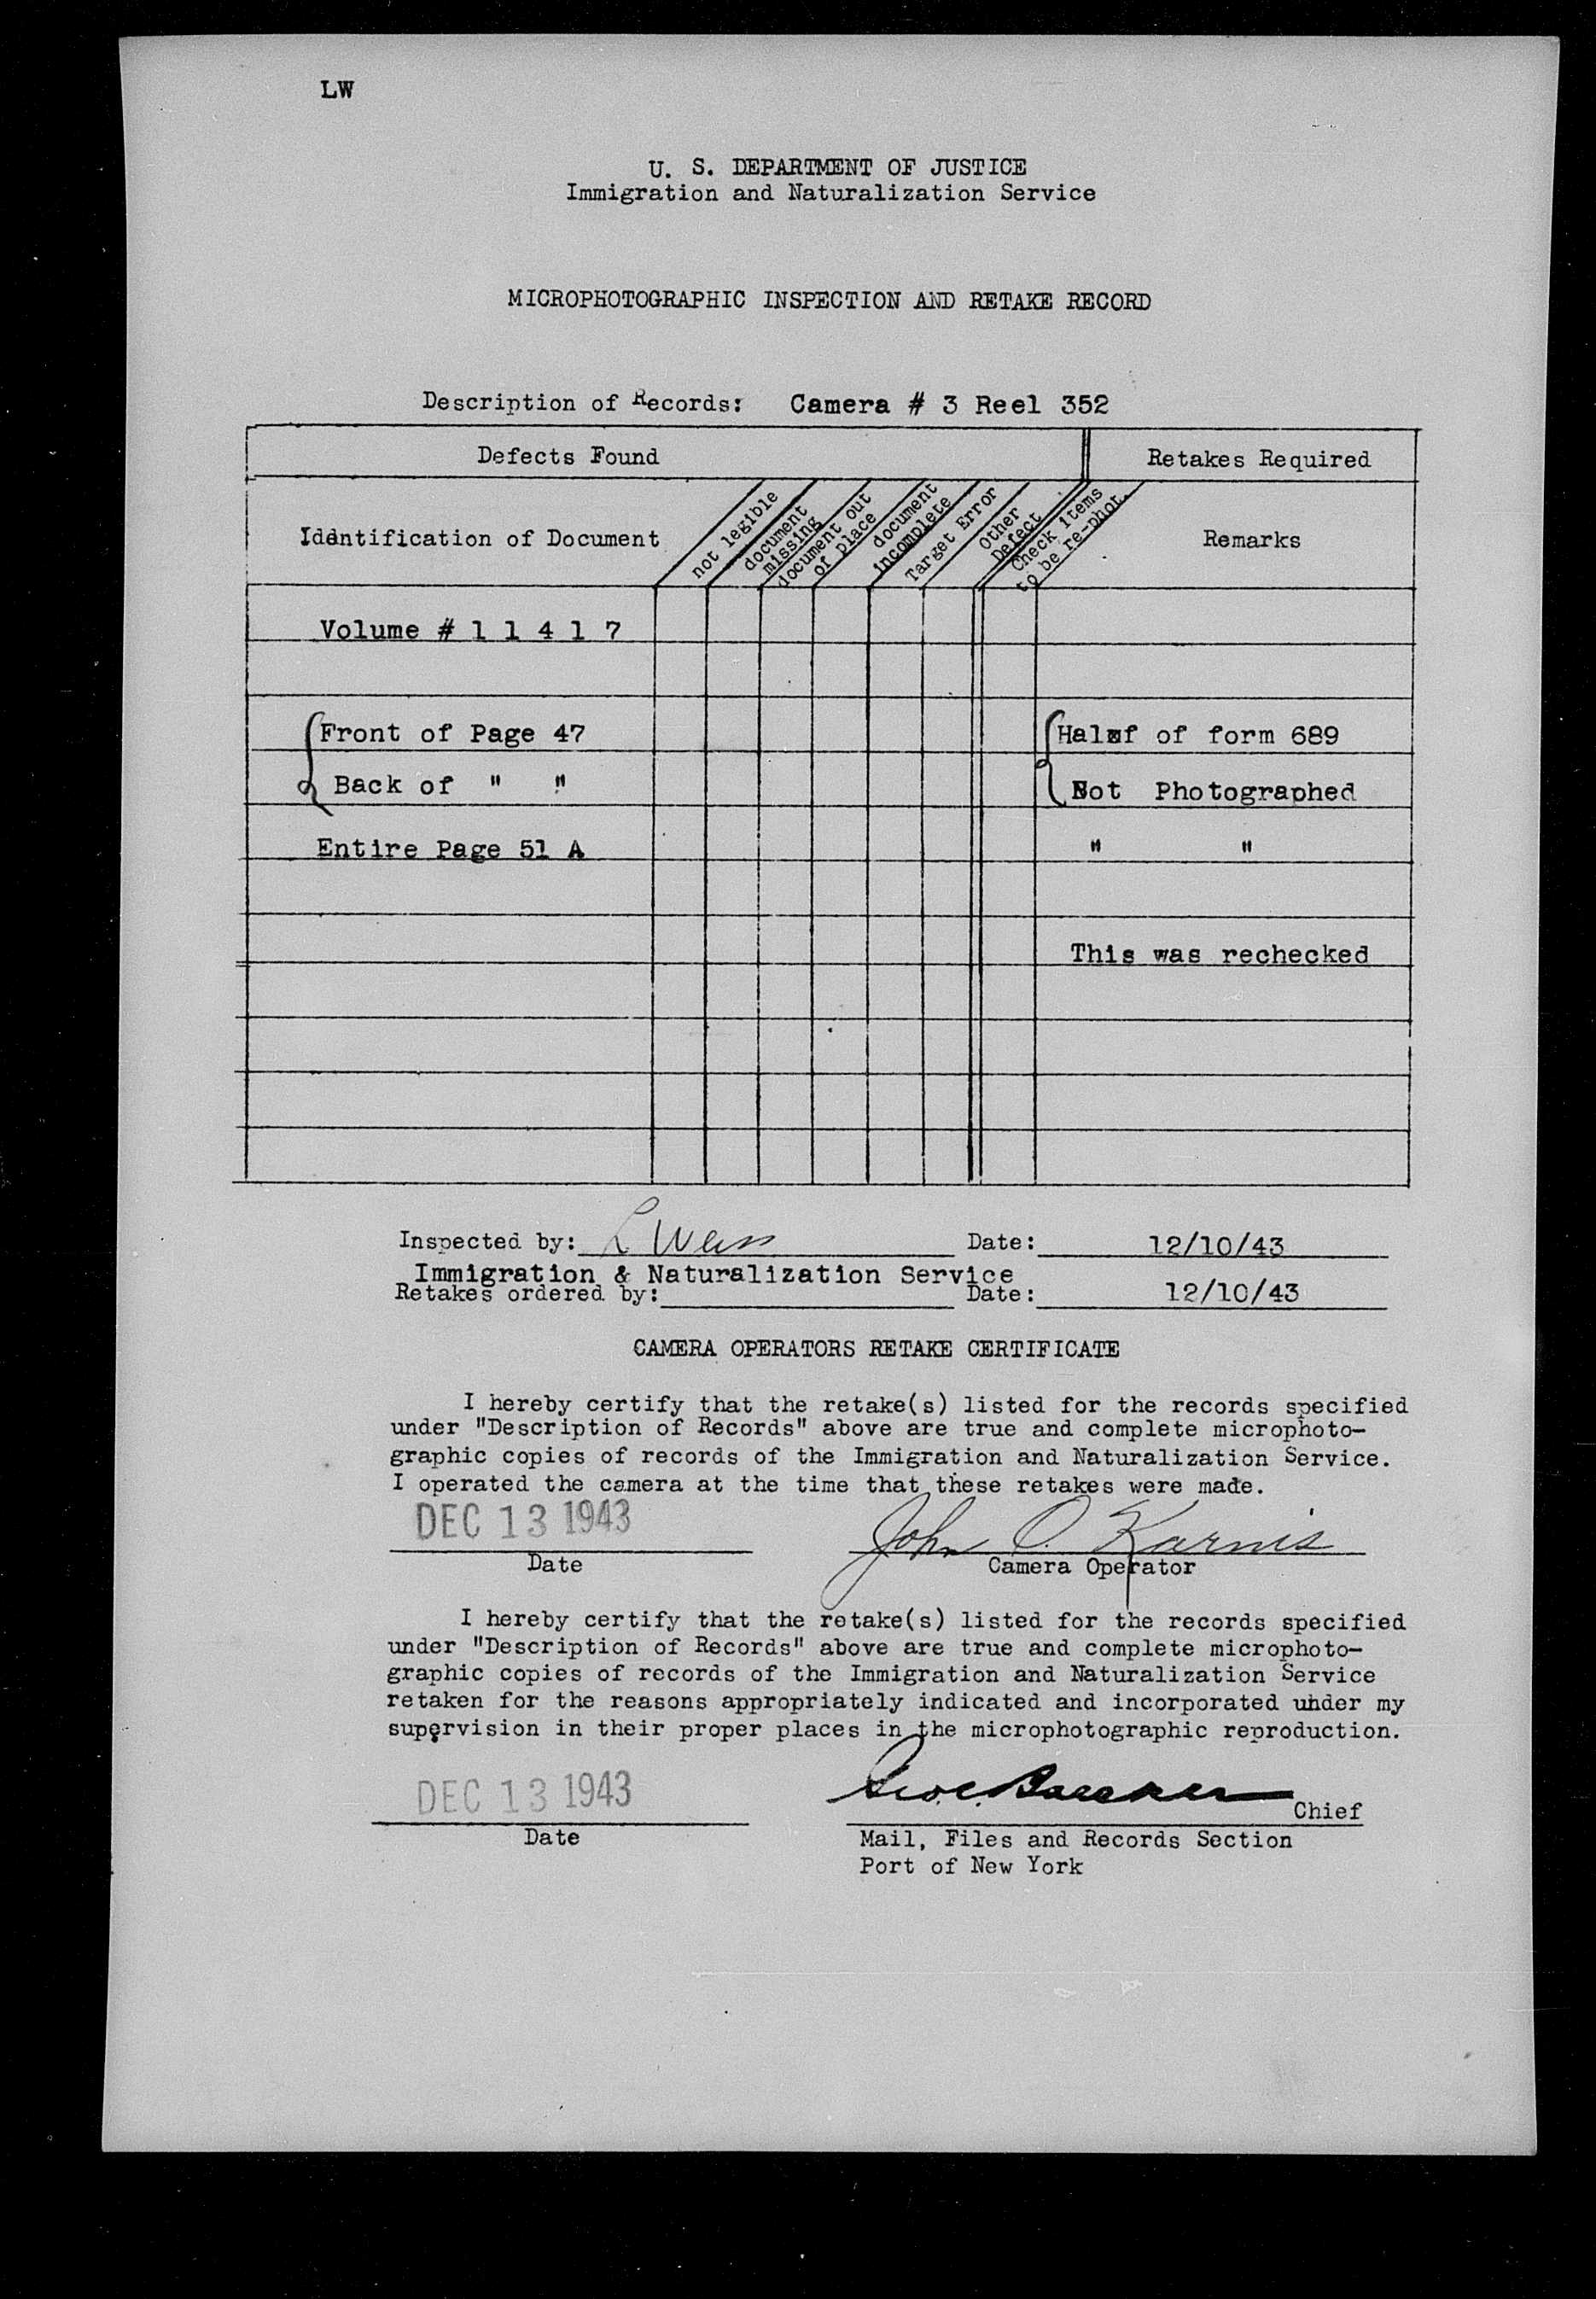 LW
U. S. DEPARTMENT OF JUSTICE
Immigration and Naturalization Service
MICROPHOTOGRAPHIC INSPECTION AND RETAKE RECORD
Description of Records: Camera # 3 Reel 352
Defects Found
Retakes Required
Identification of Document
not legible
document missing
document out of place
document incomplete
Target Error
Other Defect
Check items to be re-phot.
Remarks
Volume # 1 1 4 1 7
Front of Page 47 Half of form 689
Back of " " Not Photographed
Entire Page 51 A " "
This was rechecked
Inspected by: L Weiss Date: 12/10/43
Immigration & Naturalization Service
Retakes ordered by: Date: 12/10/43
CAMERA OPERATORS RETAKE CERTIFICATE
I hereby certify that the retake(s) listed for the records specified
under "Description of Records" above are true and complete microphoto-
graphic copies of records of the Immigration and Naturalization Service.
I operated the camera at the time that these retakes were made.
DEC 13 1943 John O. Karnis
Date Camera Operator
I hereby certify that the retake(s) listed for the records specified
under "Description of Records" above are true and complete microphoto-
graphic copies of records of the Immigration and Naturalization Service
retaken for the reasons appropriately indicated and incorporated under my
supervision in their proper places in the microphotographic reproduction.
DEC 13 1943
Chief
Date Mail, Files and Records Section
Port of New York